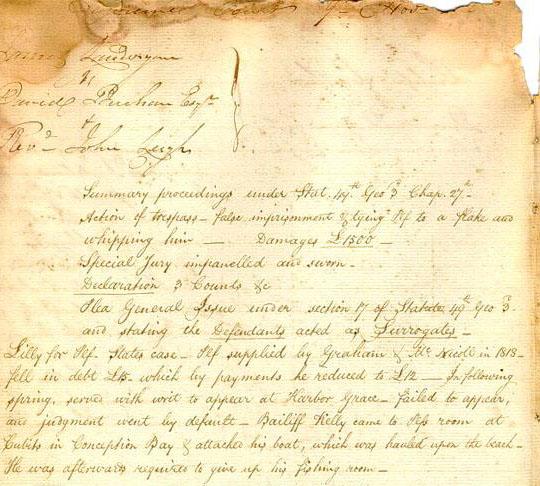 Supreme Court 7th Nov
James Landrigan
vs
David Buchan Esqr
&
Revd John Leigh
Summary proceedings under Stat. 49th Geo 3d Chap. 27th -
Action of trespass - false imprisonment & tying Plf to a flake and
whipping him - Damages £1500 -
Special Jury impanelled and sworn -
Declaration 3 Counts &c
Plea General Issue under section 17 of Statute 49th Geo 3d
and stating the Defendants acted as Surrogates -
Lilly for Plf - States case - Plf supplied by Graham & McNicoll in 1818 -
fell in debt £15 - which by payments he reduced to £12 - In following
spring, served with writ to appear at Harbor Grace - failed to appear,
and judgment went by default - Bailiff Kelly came to Plfs room at
Cubits in Conception Bay & attached his boat, which was hauled upon the beach -
He was afterwards required to give up his fishing room -